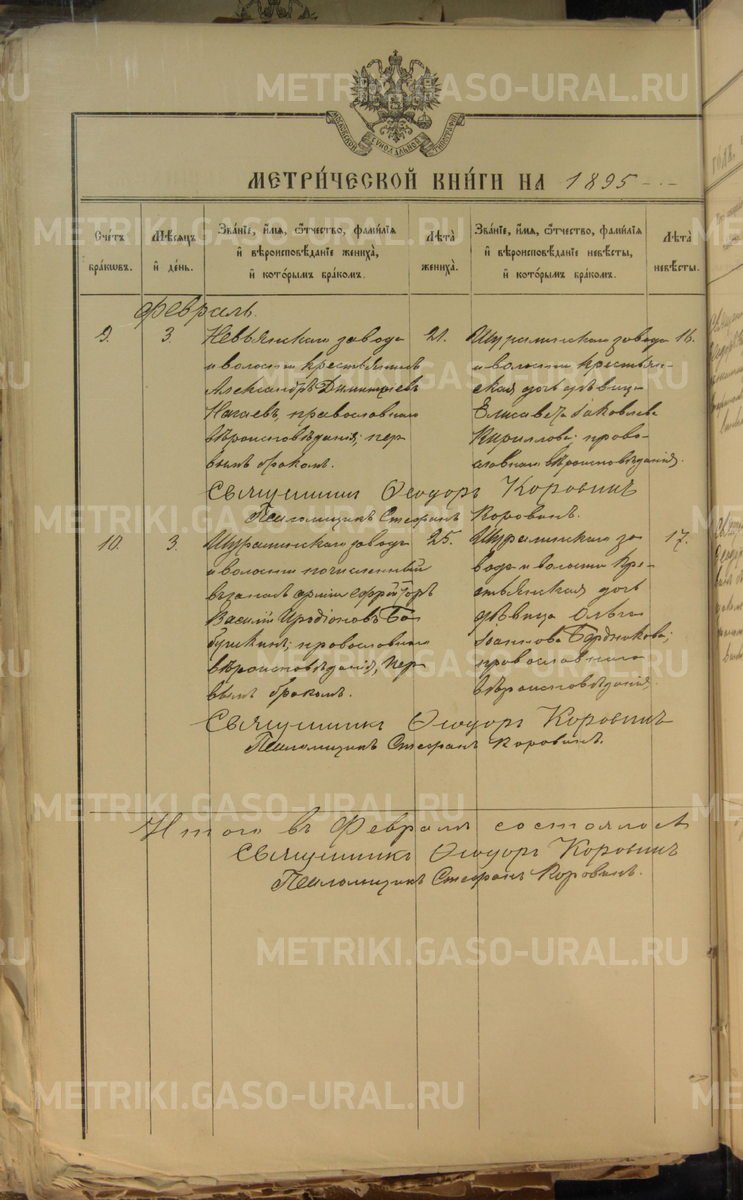 МОСКОВСКОЙ СѴНОДАЛЬНОЙ ТИПОГРАФІИ
МЕТРИ́ЧЕСКОЙ КНИ́ГИ НА 1895
Сче́тъ бра́ковъ.
Мѣ́сяцъ и҆ де́нь.
Зва́нїе, и҆́мя, ѻ҆́тчество, фами́лїя и҆ вѣроисповѣ́данїе жениха̀, и҆ кото́рымъ бра́комъ.
Лѣ́та жениха̀.
Зва́нїе, и҆́мя, ѻ҆́тчество, фами́лїя и҆ вѣроисповѣ́данїе невѣ́сты, и҆ кото́рымъ бра́комъ.
Лѣ́та невѣ́сты.
Февраль.
9.
3.
Невьянскаго завода
и волости крестьянинъ
Александръ Димитріевъ
Нагаевъ, православнаго
вѣроисповѣданія; пер
вымъ бракомъ.
21.
Шуралинскаго завода
и волости крестьян-
ская дочь дѣвица
Елисавета Іаковлева
Кириллова; право-
славнаго вѣроисповѣданія.
16.
Священникъ Ѳеодоръ Коровинъ
Псаломщикъ Стефанъ Коровинъ.
10.
3.
Шуралинскаго завода
и волости, зачисленный
въ запасъ арміи ефрейторъ
Василій Иродіоновъ Ба
бушкинъ; православнаго
вѣроисповѣданія, пер
вымъ бракомъ.
25.
Шуралинскаго за
вода и волости кре-
стьянская дочь
дѣвица Ольга
Іоаннова Бердникова;
православнаго
вѣроисповѣданія.
17.
Священникъ Ѳеодоръ Коровинъ
Псаломщикъ Стефанъ Коровинъ.
Итого въ Февралѣ состоялось
Священникъ Ѳеодоръ Коровинъ
Псаломщикъ Стефанъ Коровинъ.
METRIKI.GASO-URAL.RU